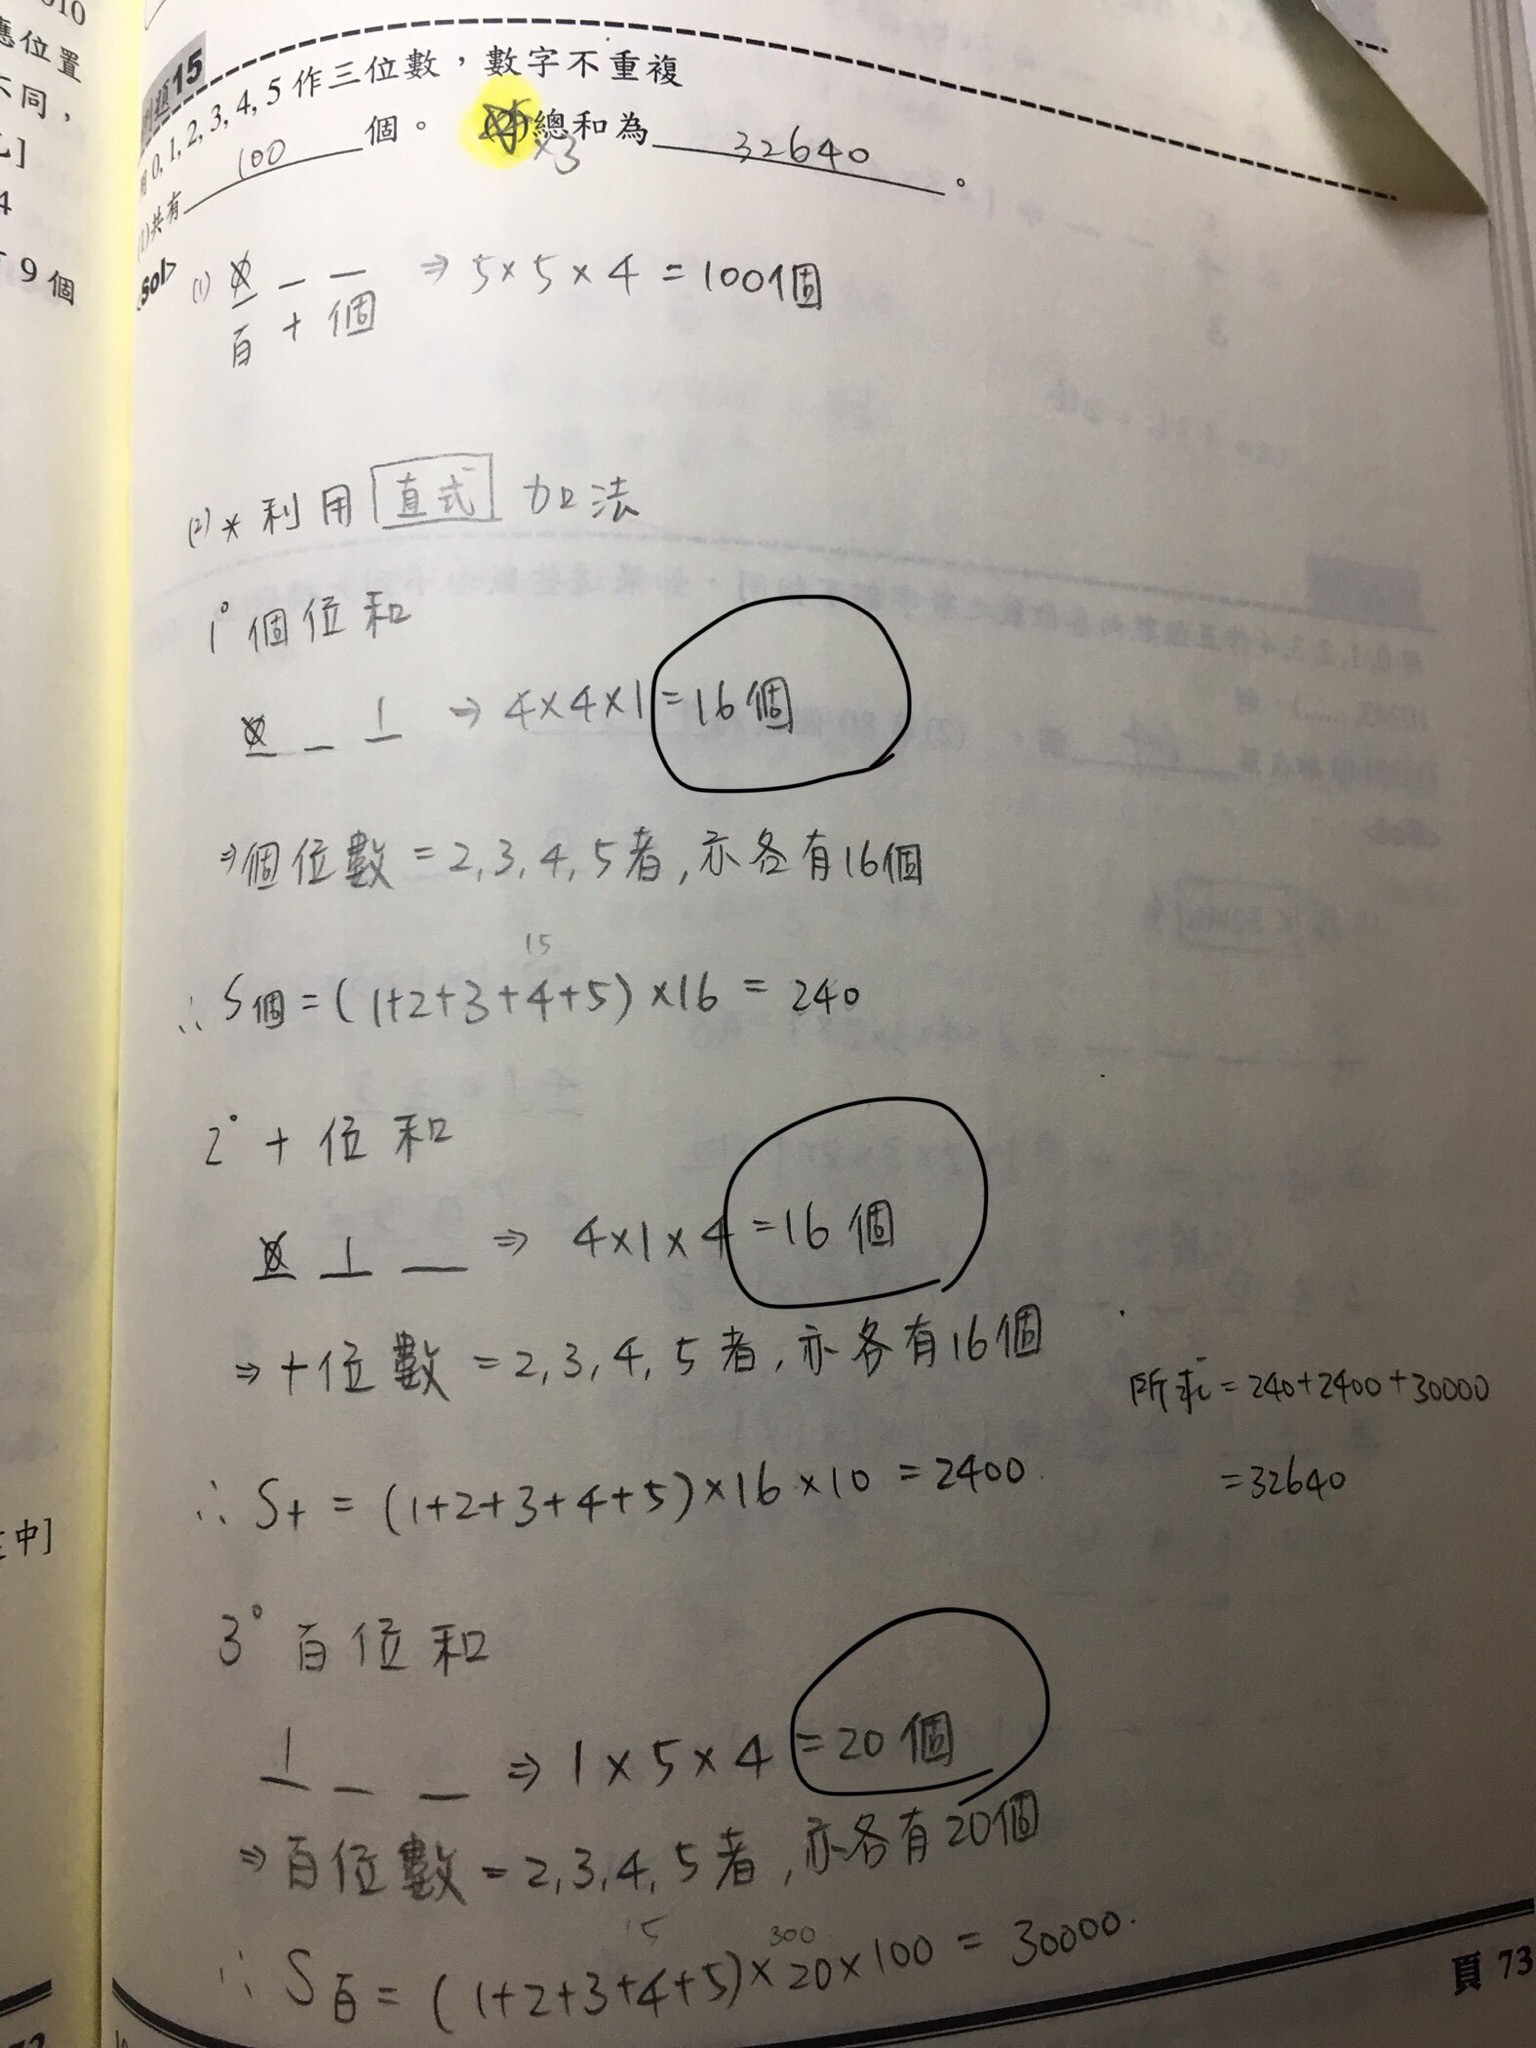 應位置
不同，
4
9 個
例題15
用 0, 1, 2, 3, 4, 5 作三位數，數字不重複
(1)共有 100 個。 總和為 32640 。
×3
<Sol> (1) 0 _ _ ⇒ 5×5×4 = 100個
百 十 個
(2) * 利用 直式 加法
1° 個位和
0 _ 1 ⇒ 4×4×1 = 16個
⇒ 個位數 = 2, 3, 4, 5 者, 亦各有16個
15
∴ S個 = (1+2+3+4+5)×16 = 240
2° 十位和
0 1 _ ⇒ 4×1×4 = 16個
⇒ 十位數 = 2, 3, 4, 5 者, 亦各有16個
所求 = 240+2400+30000
∴ S十 = (1+2+3+4+5)×16×10 = 2400
= 32640
3° 百位和
1 _ _ ⇒ 1×5×4 = 20個
⇒ 百位數 = 2, 3, 4, 5 者, 亦各有20個
15 300
∴ S百 = (1+2+3+4+5)×20×100 = 30000.
中]
頁 73